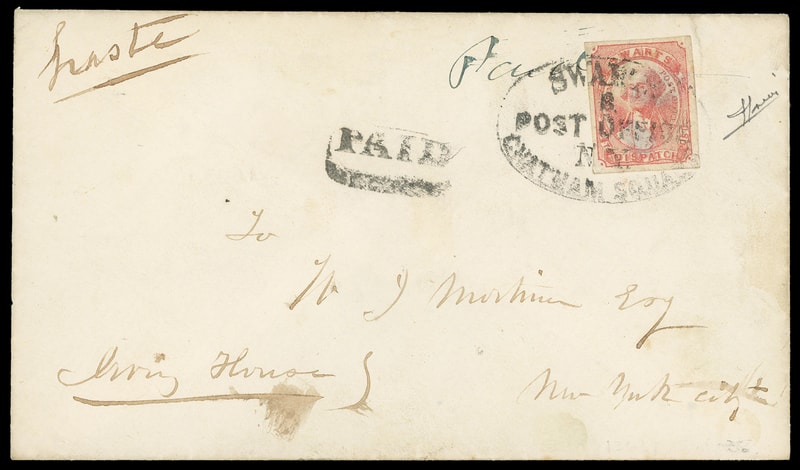 haste
Paid
SWARTS
SWARTS
B
POST OFFICE
N.Y.
CHATHAM SQUARE
DISPATCH
PAID
To
W J Mortimer Esq
Irving House
New York city